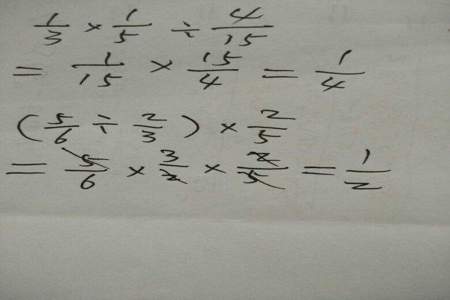 1/3 × 1/5 ÷ 4/15
= 1/15 × 15/4 = 1/4
(5/6 ÷ 2/3) × 2/5
= 5/6 × 3/2 × 2/5 = 1/2